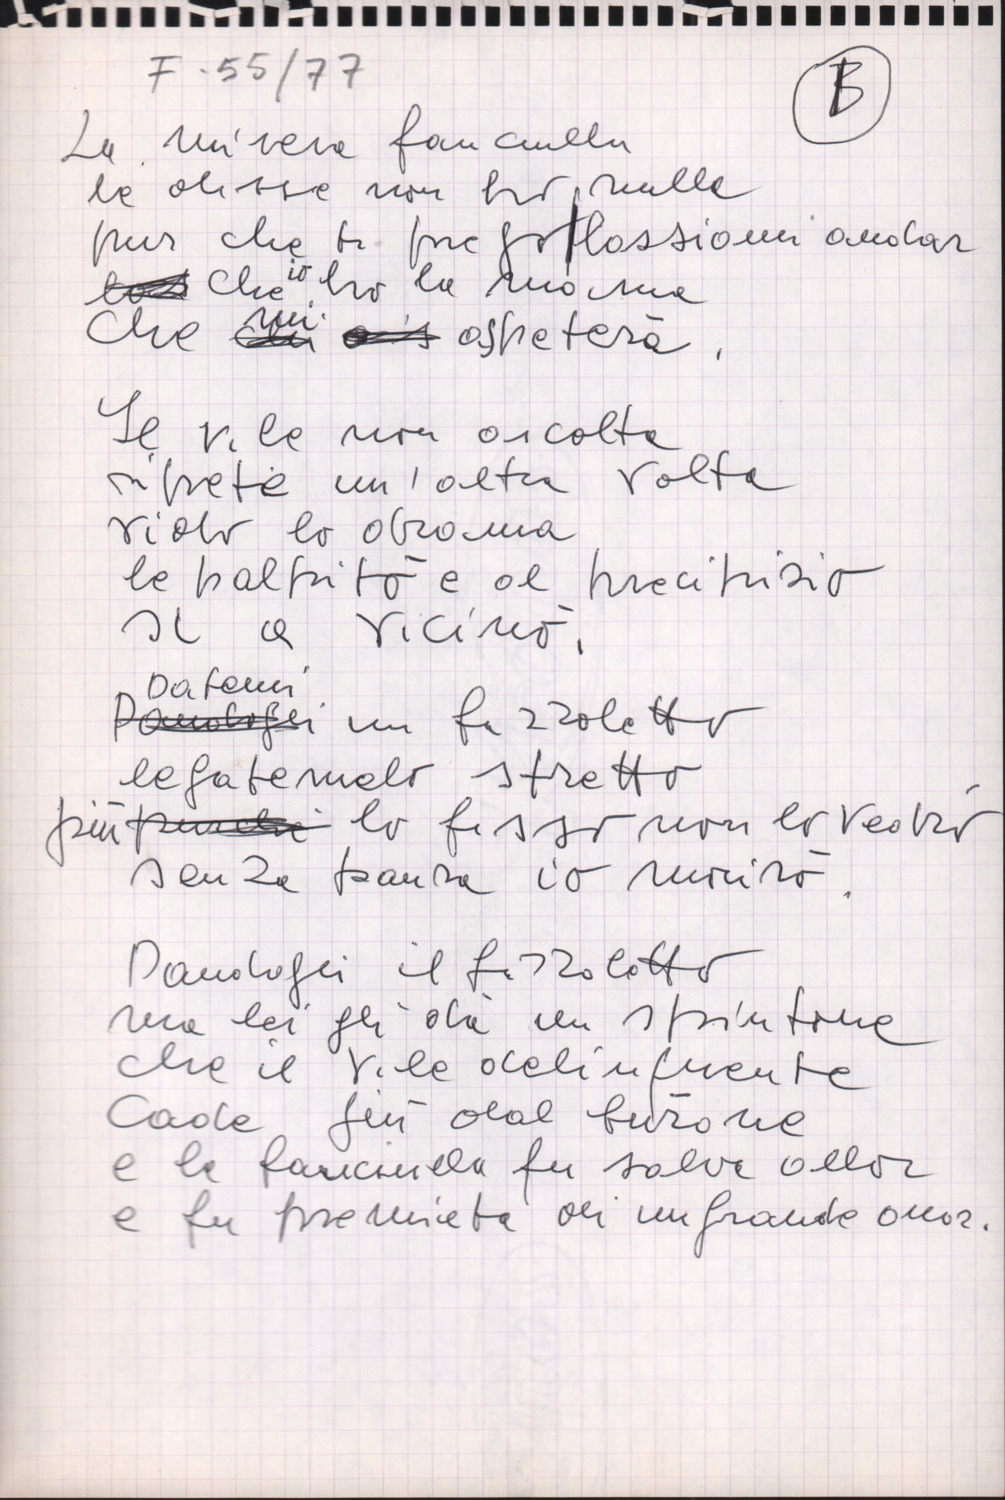 F.55/77
B
La misera fanciulla
le disse non ho nulla
pur che ti prego lassiami andar
che io ho la mamma
che mi aspeterà.
Il vile non ascolta
ripete un'altra volta
vidi lo drama
le palpitò e al precipisio
si a vicinò.
Datemi
Dandogli un fazzoletto
legatemelo stretto
più perché lo fisso non lo vedrò
senza paura io morirò.
Dandogli il fazzoletto
ma lei gli dà un spintone
che il vile delinquente
Cade giù dal burone
e la fanciulla fu salva allor
e fu premieta di un grande onor.